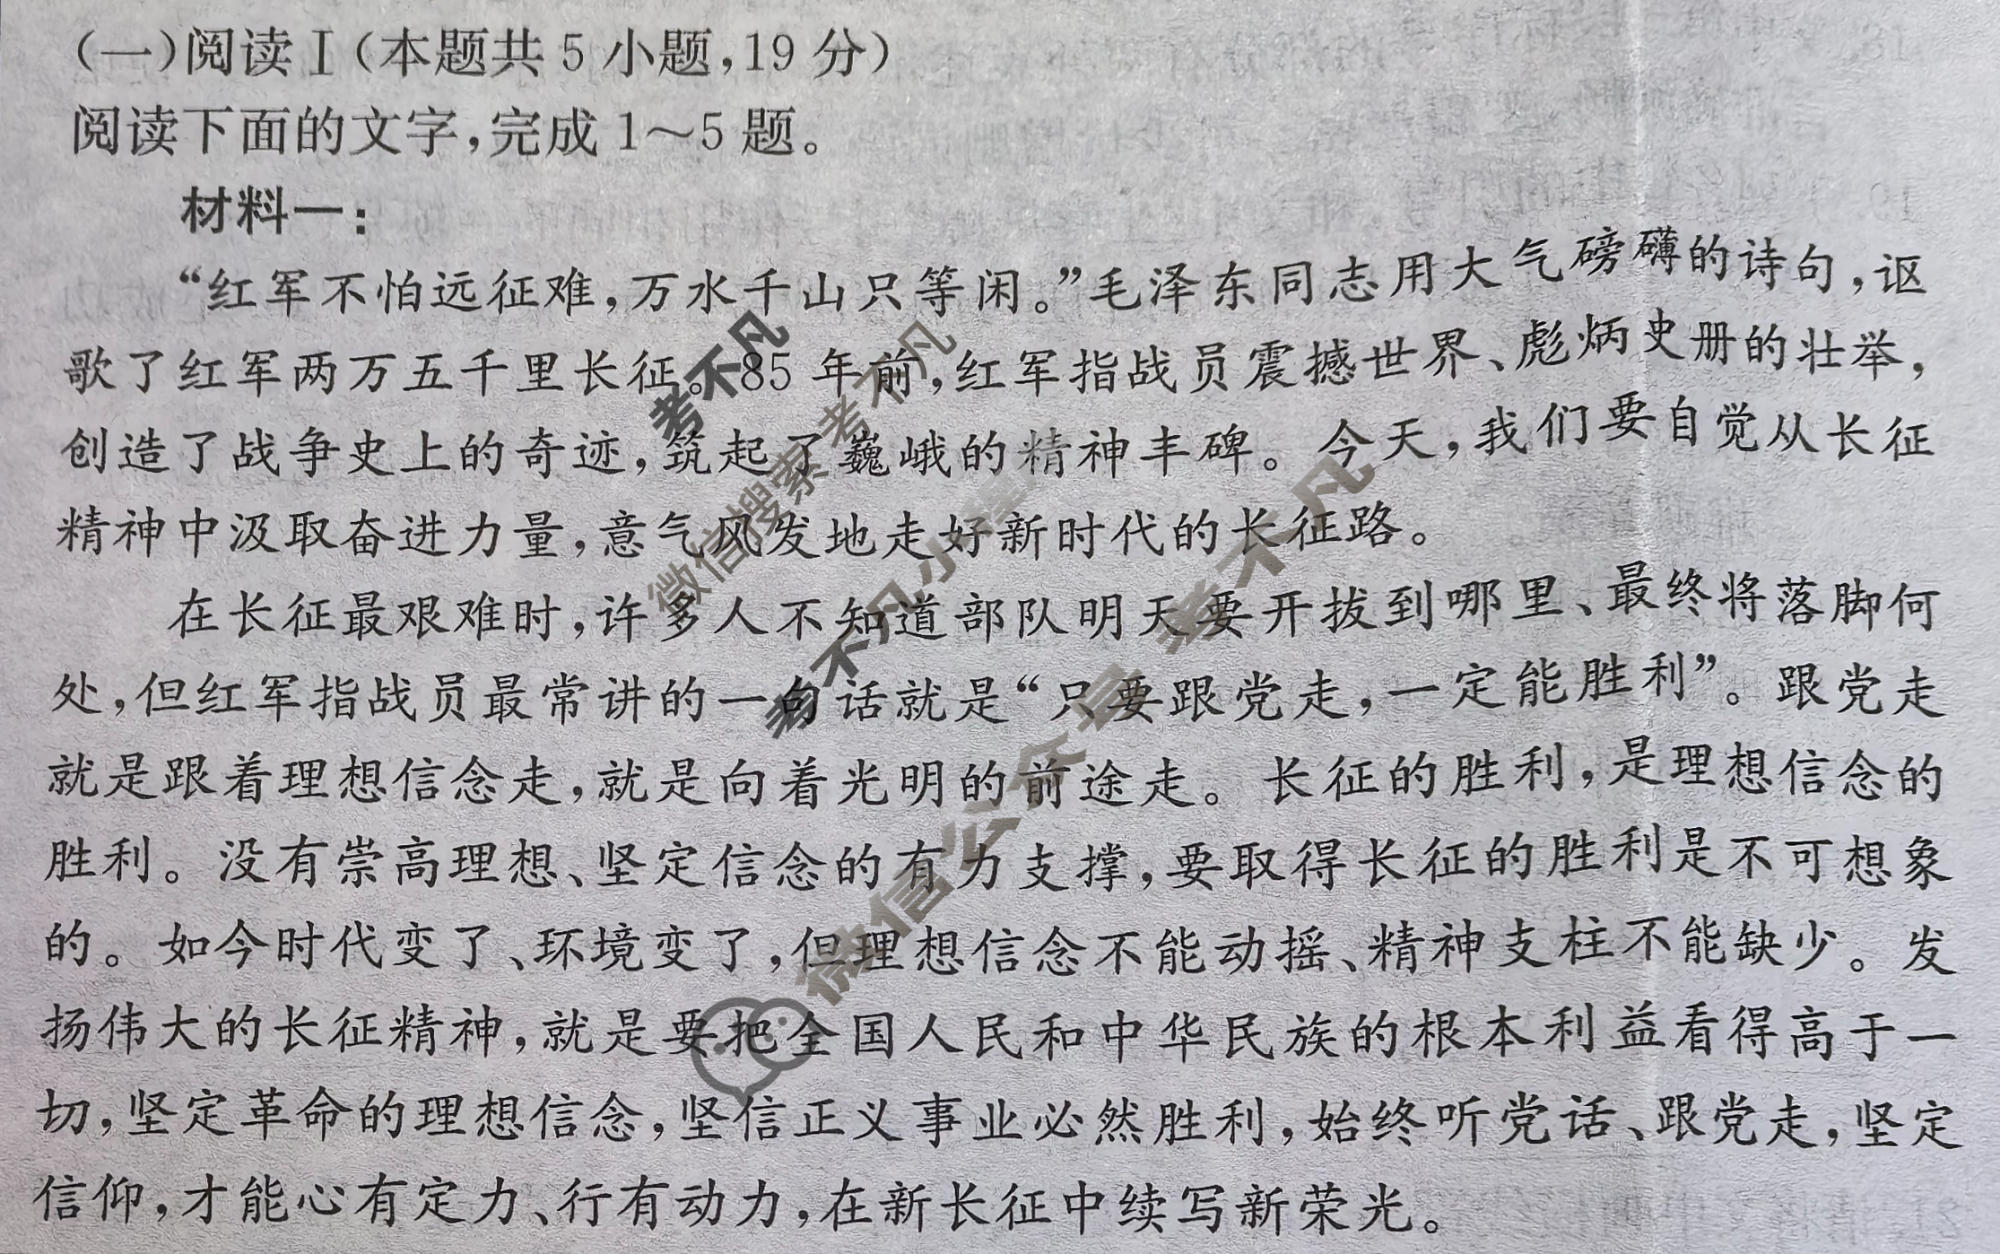 (一)阅读Ⅰ(本题共5小题,19分)
阅读下面的文字,完成1～5题。
材料一:
“红军不怕远征难,万水千山只等闲。”毛泽东同志用大气磅礴的诗句,讴
歌了红军两万五千里长征。85年前,红军指战员震撼世界、彪炳史册的壮举,
创造了战争史上的奇迹,筑起了巍峨的精神丰碑。今天,我们要自觉从长征
精神中汲取奋进力量,意气风发地走好新时代的长征路。
在长征最艰难时,许多人不知道部队明天要开拔到哪里、最终将落脚何
处,但红军指战员最常讲的一句话就是“只要跟党走,一定能胜利”。跟党走
就是跟着理想信念走,就是向着光明的前途走。长征的胜利,是理想信念的
胜利。没有崇高理想、坚定信念的有力支撑,要取得长征的胜利是不可想象
的。如今时代变了、环境变了,但理想信念不能动摇、精神支柱不能缺少。发
扬伟大的长征精神,就是要把全国人民和中华民族的根本利益看得高于一
切,坚定革命的理想信念,坚信正义事业必然胜利,始终听党话、跟党走,坚定
信仰,才能心有定力、行有动力,在新长征中续写新荣光。
考不凡
微信搜索 考不凡
考不凡小程序
微信公众号 考不凡